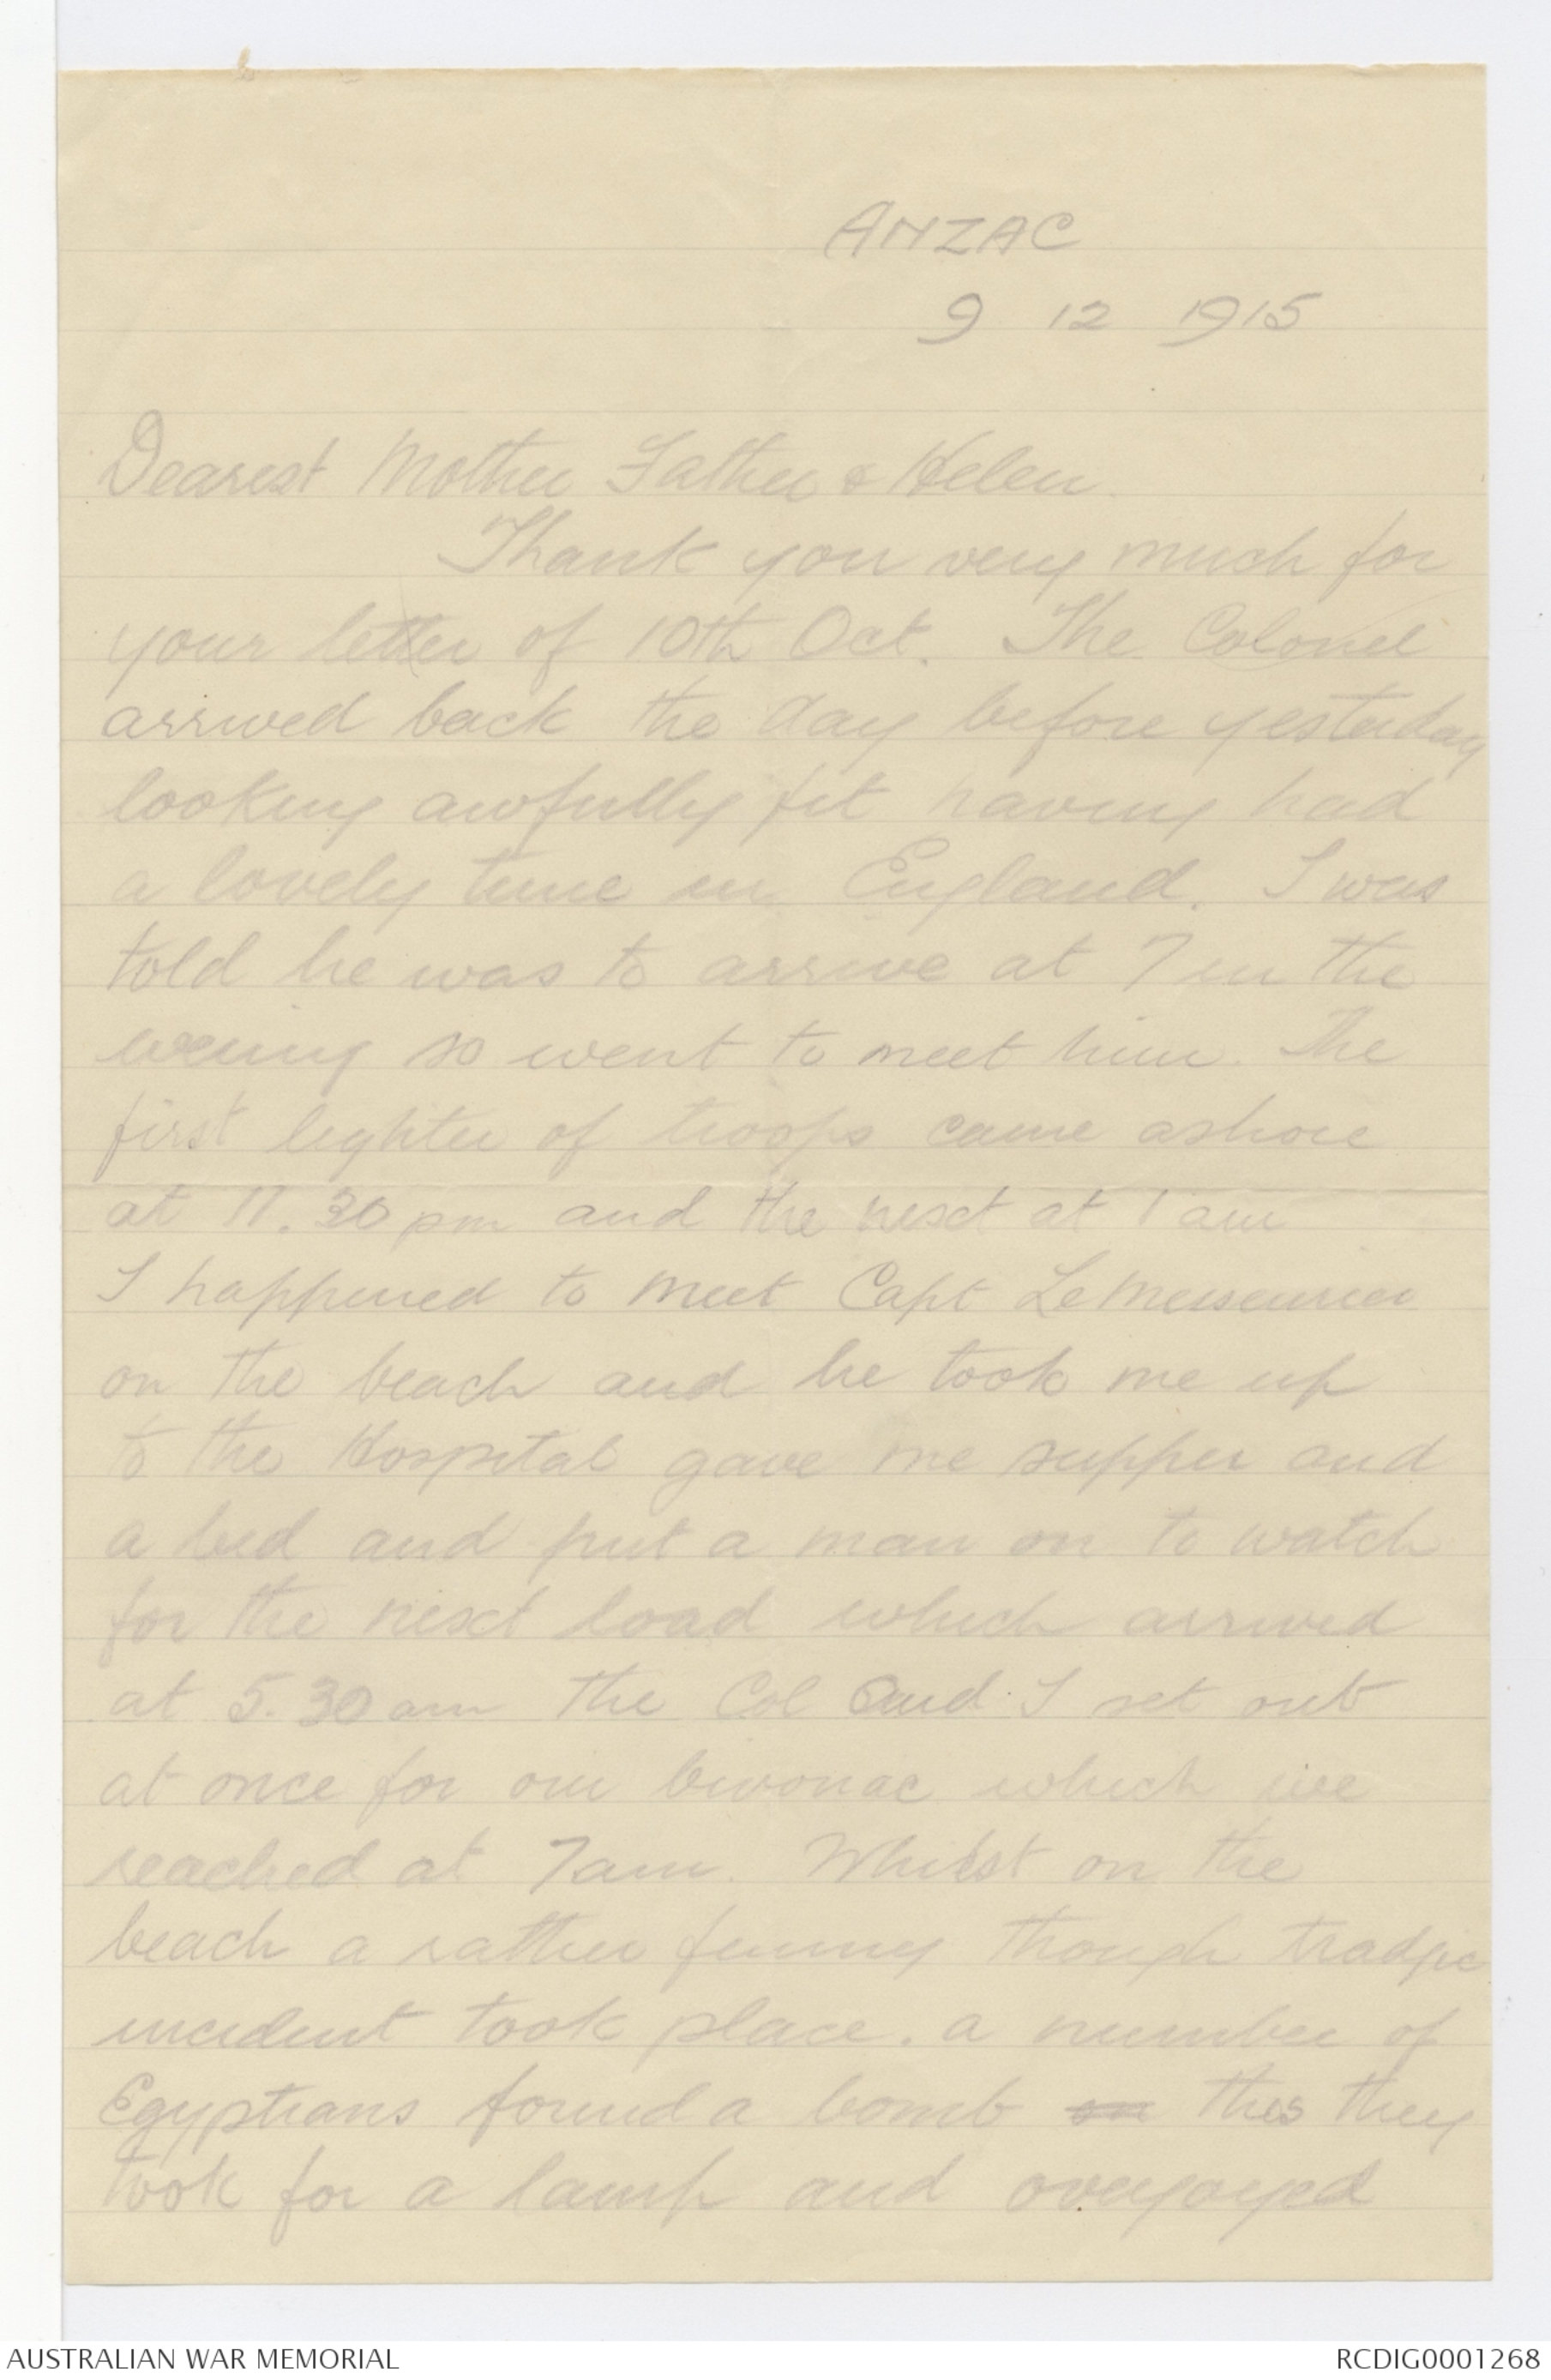 ANZAC
9 12 1915
Dearest Mother Father & Helen.
Thank you very much for
your letter of 10th Oct. The Colonel
arrived back the day before yesterday
looking awfully fit having had
a lovely time in England. I was
told he was to arrive at 7 in the
evening so went to meet him. The
first lighter of troops came ashore
at 11.30 pm and the next at 1 am
I happened to meet Capt Le
on the beach and he took me up
to the Hospital gave me supper and
a bed and put a man on to watch
for the next load which arrived
at 5.30 am The Col and I set out
at once for our bivouac which we
reached at 7am. Whilst on the
beach a rather funny though tradgic
incident took place. a number of
Egyptians found a bomb this they
took for a lamp and overjoyed
AUSTRALIAN WAR MEMORIAL
RCDIG0001268